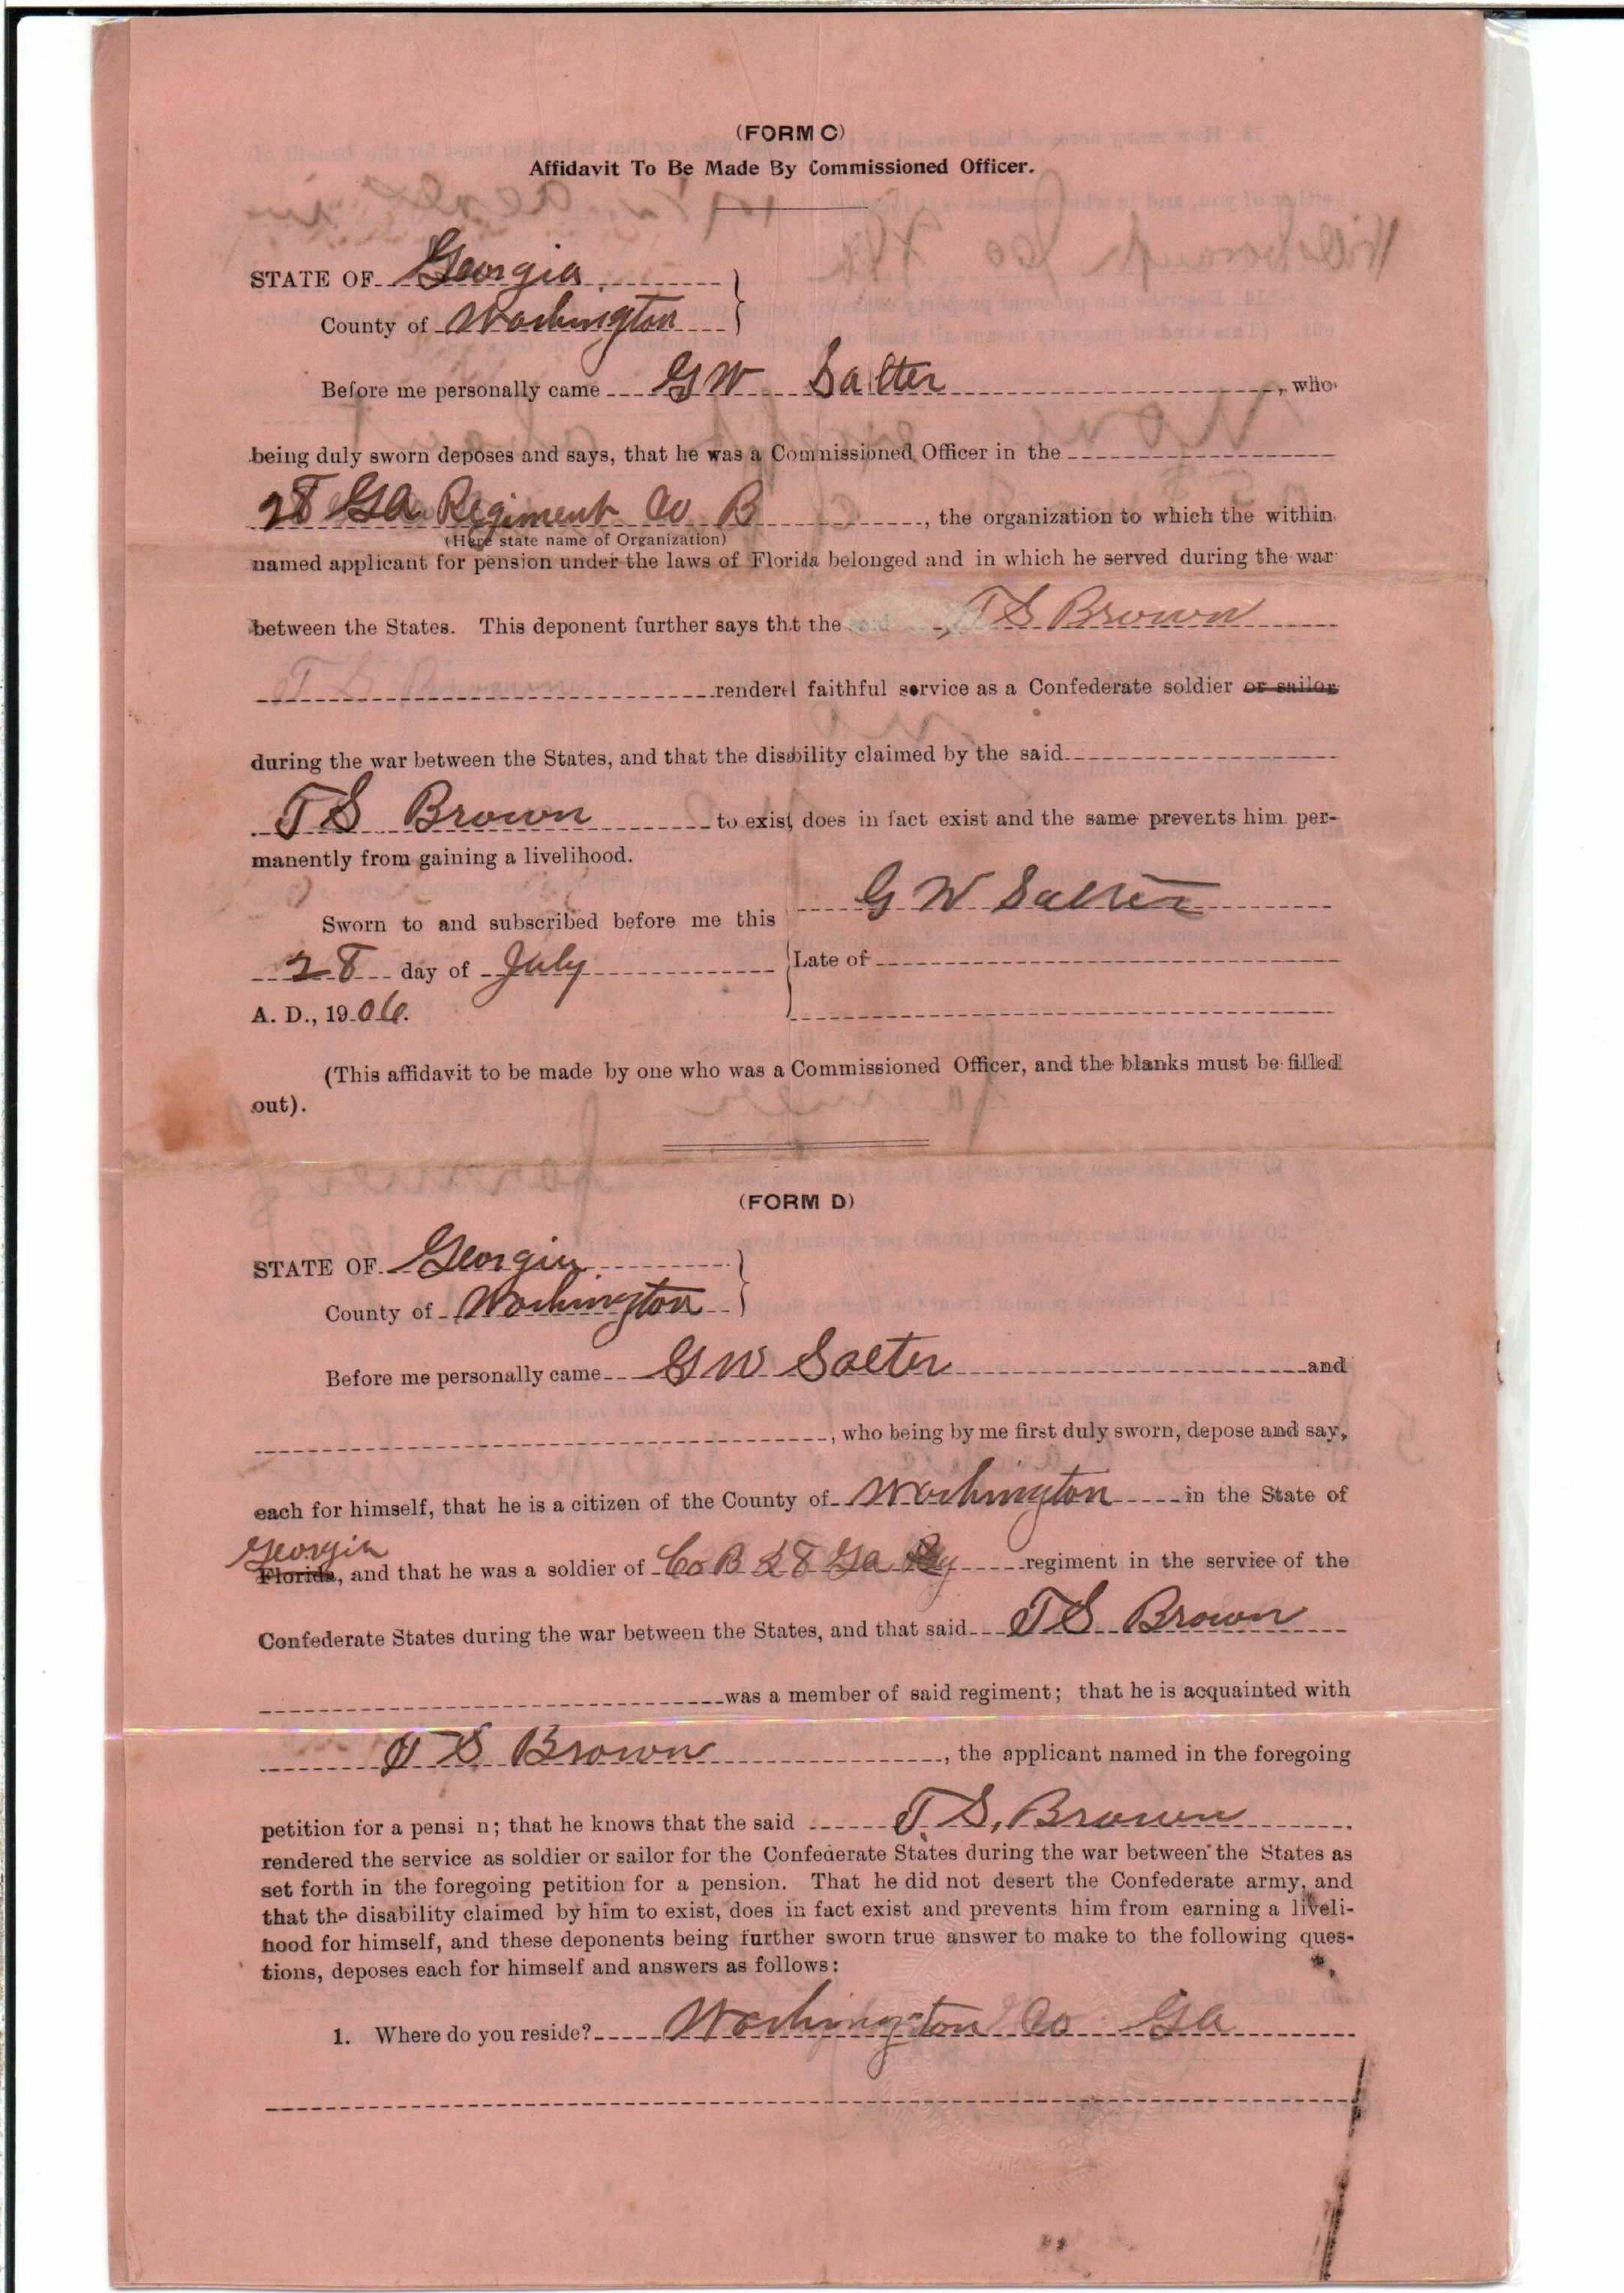 (FORM C)
Affidavit To Be Made By Commissioned Officer.
STATE OF Georgia
County of Washington
Before me personally came G W Salter, who
being duly sworn deposes and says, that he was a Commissioned Officer in the
28 Ga Regiment Co B, the organization to which the within
(Here state name of Organization)
named applicant for pension under the laws of Florida belonged and in which he served during the war
between the States. This deponent further says th t the said T S Brown
T S Brown rendered faithful service as a Confederate soldier or sailor
during the war between the States, and that the disability claimed by the said
T S Brown to exist, does in fact exist and the same prevents him per-
manently from gaining a livelihood.
G W Salter
Sworn to and subscribed before me this
28 day of July
Late of
A. D., 1906.
(This affidavit to be made by one who was a Commissioned Officer, and the blanks must be filled
out).
(FORM D)
STATE OF Georgia
County of Washington
Before me personally came G W Salter and
, who being by me first duly sworn, depose and say,
each for himself, that he is a citizen of the County of Washington in the State of
Georgia
Florida, and that he was a soldier of Co B 28 Ga Reg regiment in the service of the
Confederate States during the war between the States, and that said T S Brown
was a member of said regiment; that he is acquainted with
T S Brown, the applicant named in the foregoing
petition for a pensi n; that he knows that the said T. S. Brown
rendered the service as soldier or sailor for the Confederate States during the war between the States as
set forth in the foregoing petition for a pension. That he did not desert the Confederate army, and
that the disability claimed by him to exist, does in fact exist and prevents him from earning a liveli-
hood for himself, and these deponents being further sworn true answer to make to the following ques-
tions, deposes each for himself and answers as follows:
1. Where do you reside? Washington Co Ga